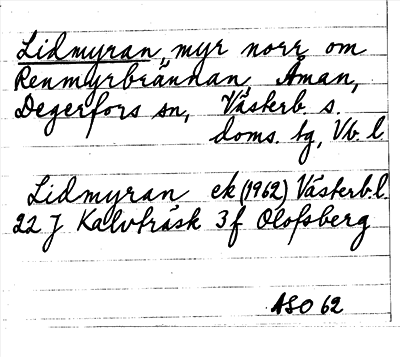 Lidmyran, myr norr om
Renmyrbrännan, Åman,
Degerfors sn, Västerb. s.
doms. tg, Vb. l
Lidmyran ek (1962) Västerb.l.
22 J Kalvträsk 3f Olofsberg
ASO 62